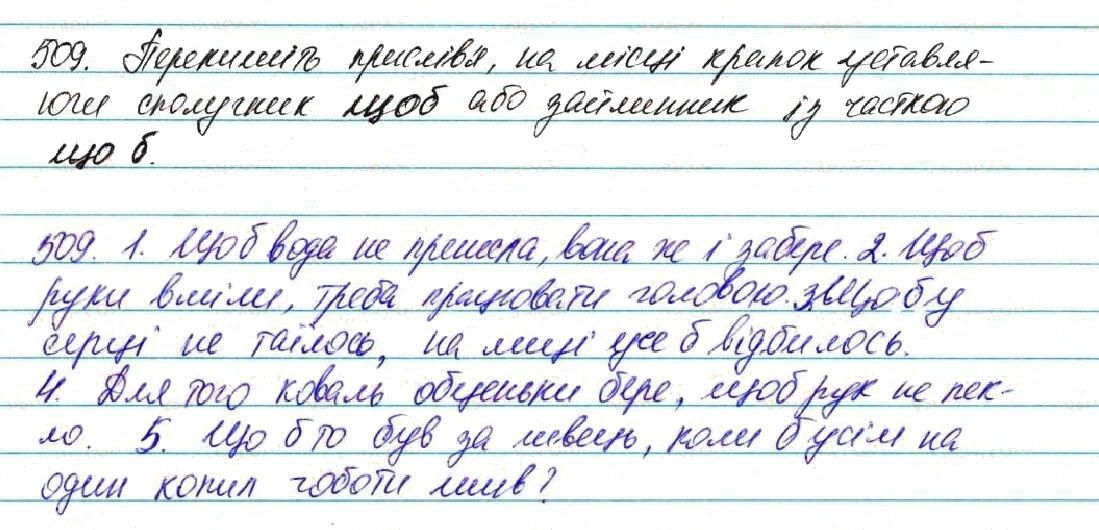 509. Перепишіть прислів'я, на місці крапок уставля-
ючи сполучник щоб або займенник із часткою
що б.
509. 1. Що б вода не принесла, вона же і забере. 2. Щоб
руки вміли, треба працювати головою. 3. Що б у
серці не таїлось, на лиці уже б відбилось.
4. Для того коваль обценьки бере, щоб рук не пек-
ло. 5. Що б то був за швець, коли б усім на
один копил чоботи шив?